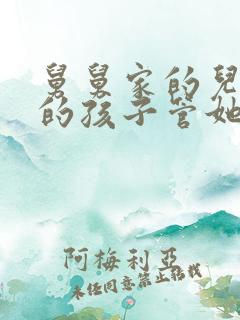 舅舅家的兒
的孩子管她
阿梅利亞
未经同意禁止转载